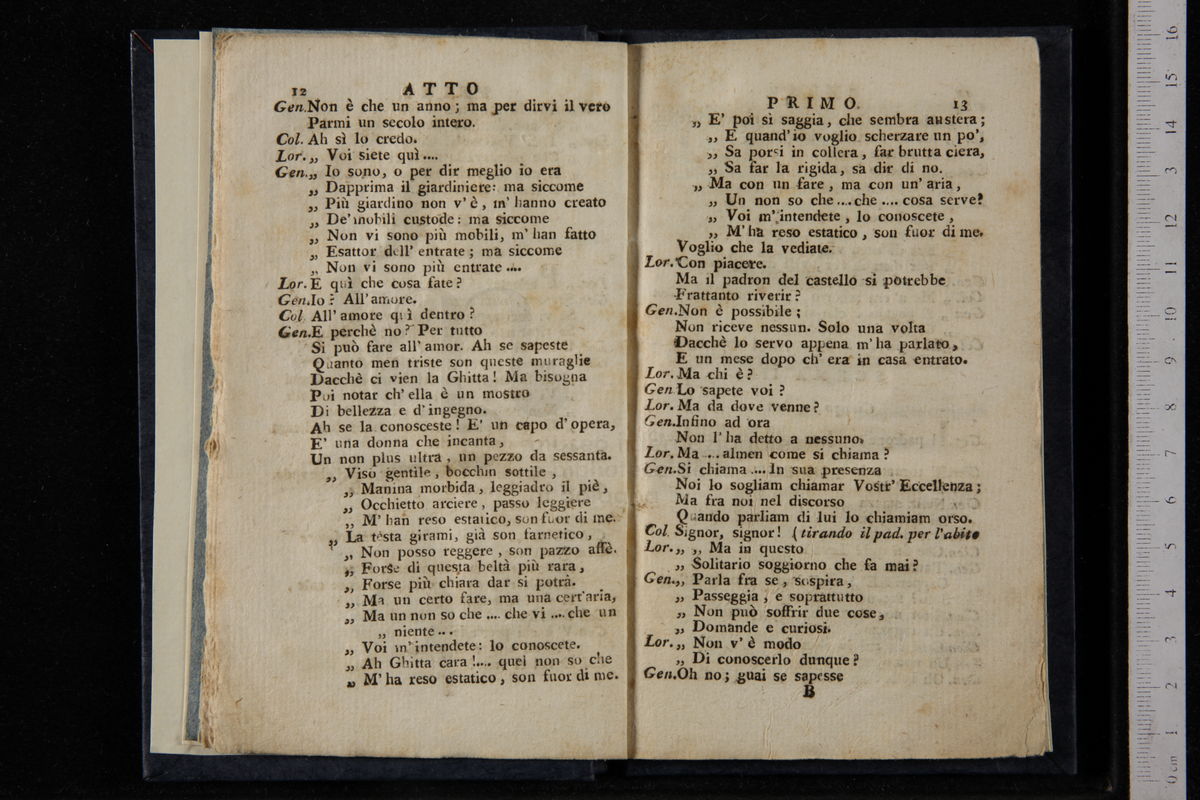 12 ATTO
Gen. Non è che un anno; ma per dirvi il vero
Parmi un secolo intero.
Col. Ah sì lo credo.
Lor. „ Voi siete quì....
Gen. „ Io sono, o per dir meglio io era
„ Dapprima il giardiniere: ma siccome
„ Più giardino non v'è, m'hanno creato
„ De' mobili custode: ma siccome
„ Non vi sono più mobili, m'han fatto
„ Esattor dell'entrate; ma siccome
„ Non vi sono più entrate ....
Lor. E quì che cosa fate?
Gen. Io? All'amore.
Col. All'amore quì dentro?
Gen. E perchè no? Per tutto
Si può fare all'amor. Ah se sapeste
Quanto men triste son queste muraglie
Dacchè ci vien la Ghitta! Ma bisogna
Poi notar ch'ella è un mostro
Di bellezza e d'ingegno.
Ah se la conosceste! E' un capo d'opera,
E' una donna che incanta,
Un non plus ultra, un pezzo da sessanta.
„ Viso gentile, bocchin sottile,
„ Manina morbida, leggiadro il piè,
„ Occhietto arciere, passo leggiere
„ M'han reso estatico, son fuor di me.
„ La testa girami, già son farnetico,
„ Non posso reggere, son pazzo affè.
„ Forse di questa beltà più rara,
„ Forse più chiara dar si potrà.
„ Ma un certo fare, ma una cert'aria,
„ Ma un non so che .... che vi .... che un
„ niente ...
„ Voi m'intendete: lo conoscete.
„ Ah Ghitta cara!.... quel non so che
„ M'ha reso estatico, son fuor di me.
PRIMO. 13
„ E' poi sì saggia, che sembra austera;
„ E quand'io voglio scherzare un po',
„ Sa porsi in collera, far brutta ciera,
„ Sa far la rigida, sa dir di no.
„ Ma con un fare, ma con un'aria,
„ Un non so che ... che .... cosa serve?
„ Voi m'intendete, lo conoscete,
„ M'ha reso estatico, son fuor di me.
Voglio che la vediate.
Lor. Con piacere.
Ma il padron del castello si potrebbe
Frattanto riverir?
Gen. Non è possibile;
Non riceve nessun. Solo una volta
Dacchè lo servo appena m'ha parlato,
E un mese dopo ch'era in casa entrato.
Lor. Ma chi è?
Gen. Lo sapete voi?
Lor. Ma da dove venne?
Gen. Infino ad ora
Non l'ha detto a nessuno.
Lor. Ma ... almen come si chiama?
Gen. Si chiama .... In sua presenza
Noi lo sogliam chiamar Vostr' Eccellenza;
Ma fra noi nel discorso
Quando parliam di lui lo chiamiam orso.
Col. Signor, signor! (tirando il pad. per l'abito
Lor. „ „ Ma in questo
„ Solitario soggiorno che fa mai?
Gen. „ Parla fra se, sospira,
„ Passeggia, e soprattutto
„ Non può soffrir due cose,
„ Domande e curiosi.
Lor. „ Non v'è modo
„ Di conoscerlo dunque?
Gen. Oh no; guai se sapesse
B
0 cm 1 2 3 4 5 6 7 8 9 10 11 12 13 14 15 16